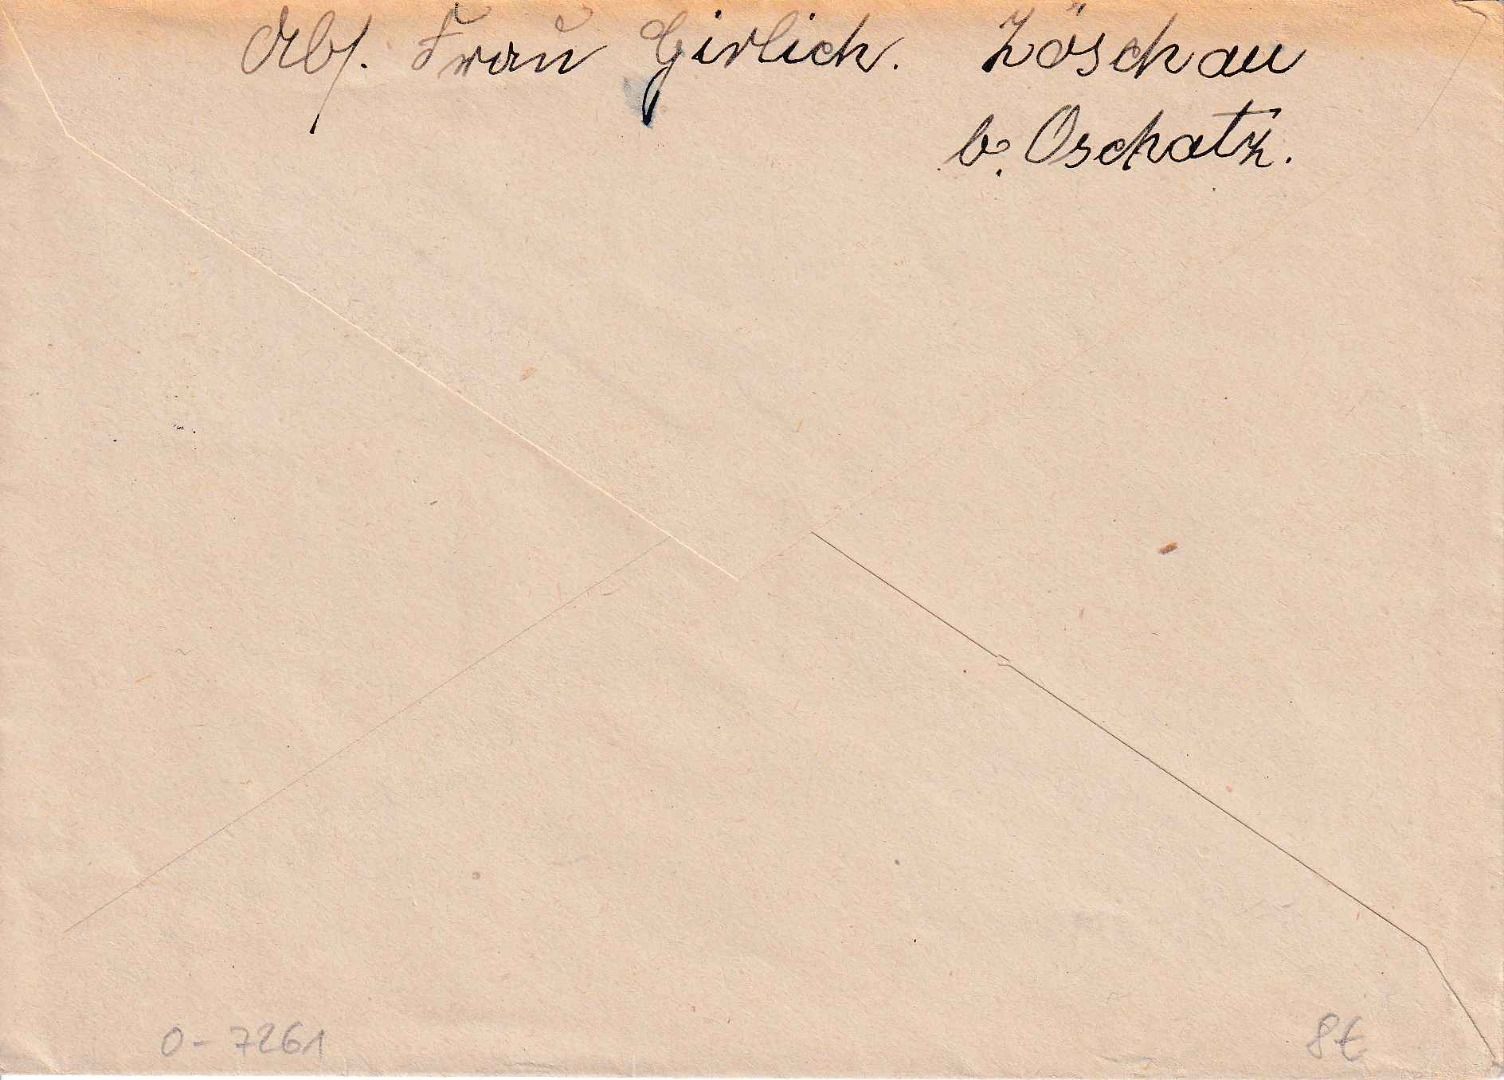 Abs. Frau Girlich. Zöschau
b. Oschatz.
0-7261
8€